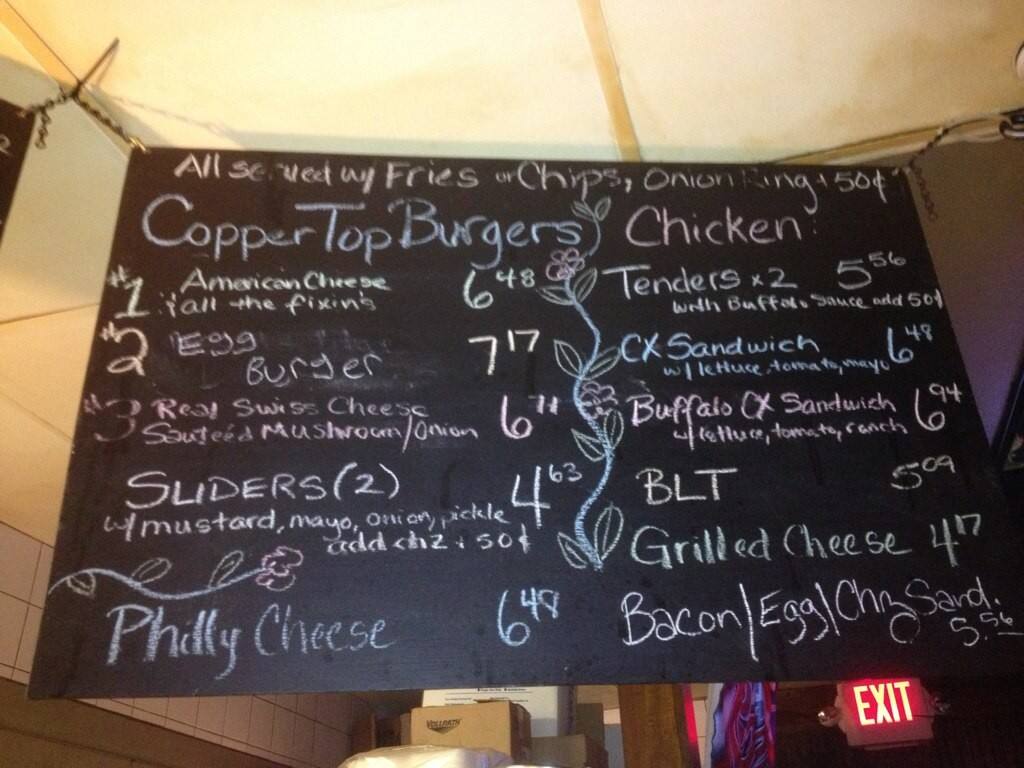 All served w/ Fries or Chips, Onion Ring + 50¢
Copper Top Burgers
#1 American Cheese 6 48
: & all the fixin's
#2 Egg Burger 7 17
#3 Real Swiss Cheese 6 71
Sauteéd Mushroom/Onion
SLIDERS (2) 4 63
w/ mustard, mayo, onion, pickle
add chz + 50¢
Philly Cheese 6 48
Chicken:
Tenders x 2 5 56
with Buffalo Sauce add 50¢
CX Sandwich 6 48
w/ lettuce, tomato, mayo
Buffalo CX Sandwich 6 94
w/ lettuce, tomato, ranch
BLT 5 09
Grilled Cheese 4 17
Bacon/Egg/Chz Sand.
5.56
VOLLRATH
EXIT